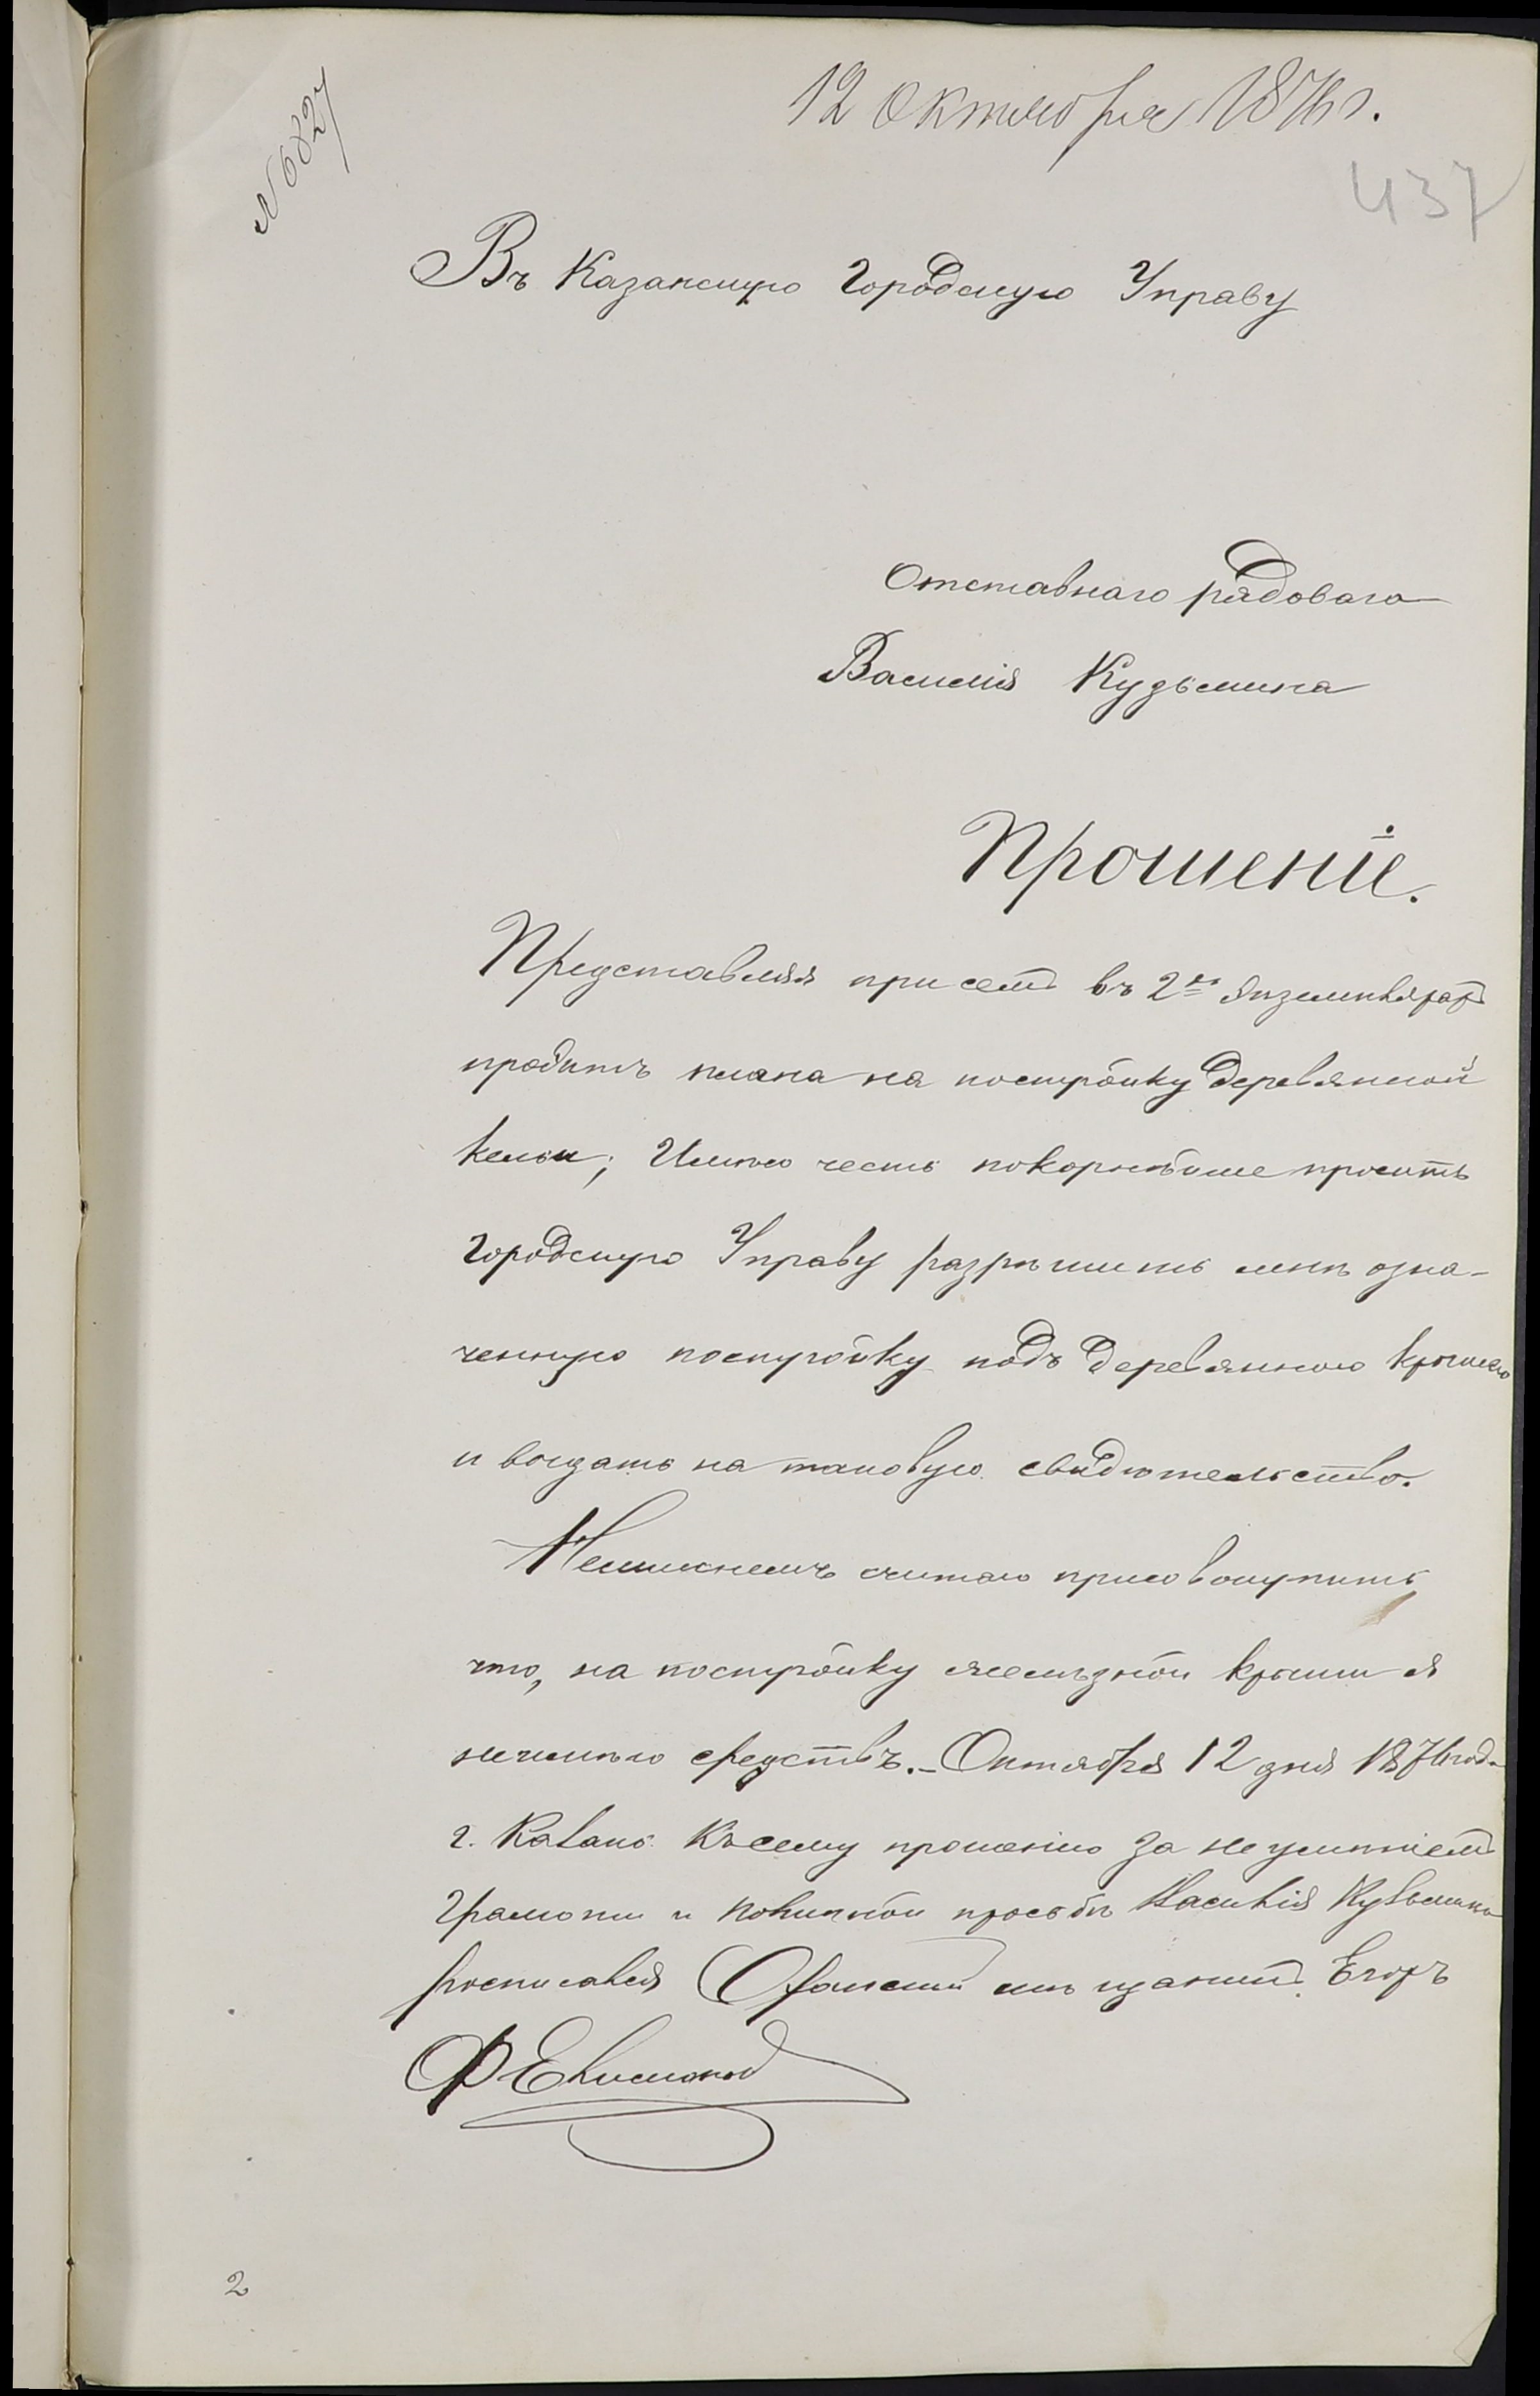 № 6827
12 Октября 1876 г.
437
Въ Казанскую Городскую Управу
Отставнаго рядоваго
Василія Кузьмина
Прошеніе.
Представляя при семъ въ 2хъ экземплярахъ
проэктъ плана на постройку деревянной
кельи; Имѣю честь покорнѣйше просить
Городскую Управу разрѣшить мнѣ озна-
ченную постройку подъ деревянною крышею
и выдать на таковую свидѣтельство.
Нелишнемъ считаю присовокупить,
что, на постройку желѣзной крыши я
неимѣю средствъ. – Октября 12 дня 1876 года
г. Казань. Къ сему прошенію за неумѣніемъ
грамоты и по личной просьбѣ Василія Кузьмина
росписался мѣщанинъ Егоръ